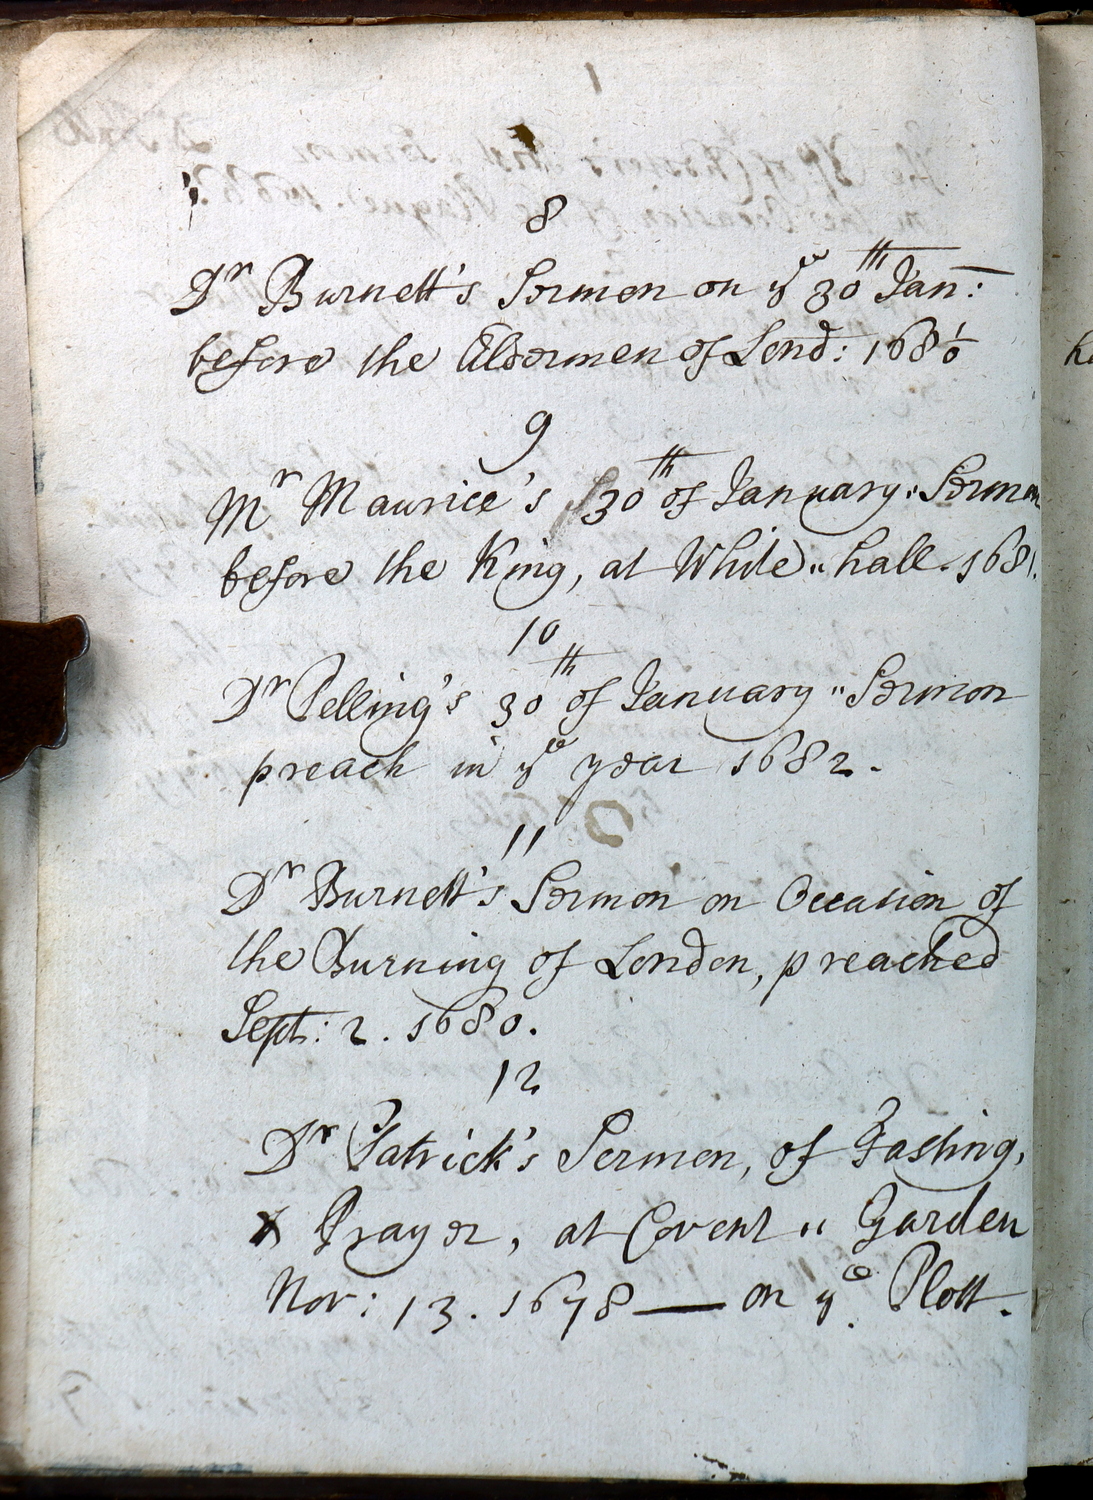 8
Dr Burnett's Sermon on ye 30th Jan:
before the Aldermen of Lond: 168 1/0
9
Mr Maurice's 30th of January „ Sermon
before the King, at White „ hall. 1681.
10
Dr Pelling's 30th of January „ Sermon
preach in ye year 1682.
11
Dr Burnett's Sermon on Occasion of
the Burning of London, preached
Sept: 2. 1680.
12
Dr Patrick's Sermon, of Fasting,
& Prayer, at Covent „ Garden
Nov: 13. 1678 — on ye Plott.